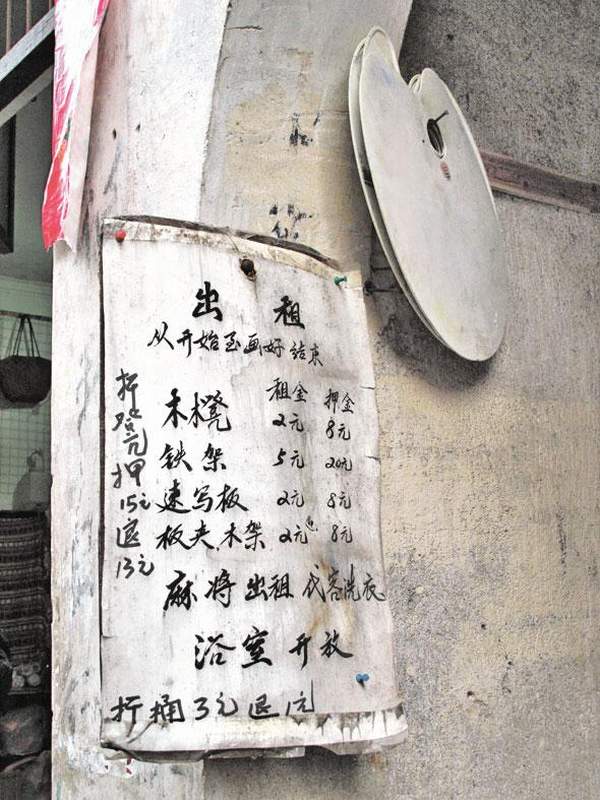 出 租
从开始至画好结束
租金 押金
木櫈 2元 8元
铁架 5元 20元
速写板 2元 8元
板夹.木架 2元 8元
麻将出租 代客洗衣
浴室开放
押桶3元退1元
押
元
押
15元
退
13元